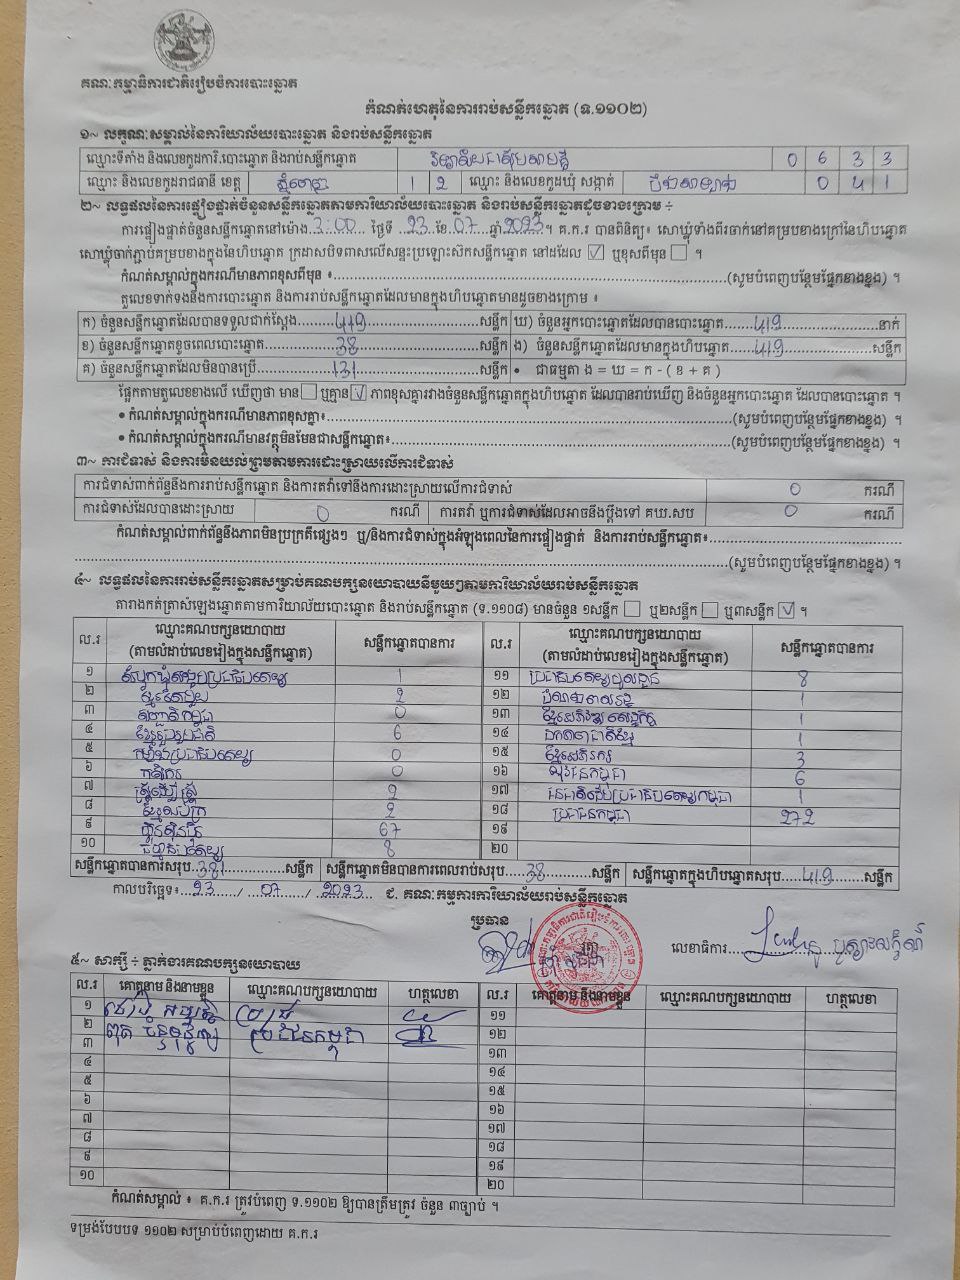 គណៈកម្មាធិការជាតិរៀបចំការបោះឆ្នោត
កំណត់ហេតុនៃការរាប់សន្លឹកឆ្នោត (ទ.១១០២)
១~ លក្ខណៈសម្គាល់នៃការិយាល័យបោះឆ្នោត និងរាប់សន្លឹកឆ្នោត
ឈ្មោះទីតាំង និងលេខកូដការិ.បោះឆ្នោត និងរាប់សន្លឹកឆ្នោត 0 6 3 3
ឈ្មោះ និងលេខកូដរាជធានី ខេត្ត ភ្នំពេញ 1 2 ឈ្មោះ និងលេខកូដឃុំ សង្កាត់ 0 4 1
២~ លទ្ធផលនៃការផ្ទៀងផ្ទាត់ចំនួនសន្លឹកឆ្នោតតាមការិយាល័យបោះឆ្នោត និងរាប់សន្លឹកឆ្នោតដូចខាងក្រោម ÷
ការផ្ទៀងផ្ទាត់ចំនួនសន្លឹកឆ្នោតនៅម៉ោង 3:00 ថ្ងៃទី 23 ខែ 07 ឆ្នាំ 2023 ។ គ.ក.រ បានពិនិត្យ៖ សោឃ្លុំទាំងពីរចាក់នៅគម្របខាងក្រៅនៃហិបឆ្នោត
សោឃ្លុំចាក់ភ្ជាប់គម្របខាងក្នុងនៃហិបឆ្នោត ក្រដាសបិទពាសលើសន្ទះប្រឡោះស៊កសន្លឹកឆ្នោត នៅដដែល ☑ ឬខុសពីមុន ☐ ។
កំណត់សម្គាល់ក្នុងករណីមានភាពខុសពីមុន ៖ (សូមបំពេញបន្ថែមផ្នែកខាងខ្នង) ។
តួលេខទាក់ទងនឹងការបោះឆ្នោត និងការរាប់សន្លឹកឆ្នោតដែលមានក្នុងហិបឆ្នោតមានដូចខាងក្រោម ៖
ក) ចំនួនសន្លឹកឆ្នោតដែលបានទទួលជាក់ស្តែង សន្លឹក ឃ) ចំនួនអ្នកបោះឆ្នោតដែលបានបោះឆ្នោត 419 នាក់
ខ) ចំនួនសន្លឹកឆ្នោតខូចពេលបោះឆ្នោត 38 សន្លឹក ង) ចំនួនសន្លឹកឆ្នោតដែលមានក្នុងហិបឆ្នោត 419 សន្លឹក
គ) ចំនួនសន្លឹកឆ្នោតដែលមិនបានប្រើ 131 សន្លឹក • ជាធម្មតា ង = ឃ = ក - ( ខ + គ )
ផ្អែកតាមតួលេខខាងលើ ឃើញថា មាន ☐ ឬគ្មាន ☑ ភាពខុសគ្នារវាងចំនួនសន្លឹកឆ្នោតក្នុងហិបឆ្នោត ដែលបានរាប់ឃើញ និងចំនួនអ្នកបោះឆ្នោត ដែលបានបោះឆ្នោត ។
• កំណត់សម្គាល់ក្នុងករណីមានភាពខុសគ្នា៖ (សូមបំពេញបន្ថែមផ្នែកខាងខ្នង) ។
• កំណត់សម្គាល់ក្នុងករណីមានវត្ថុមិនមែនជាសន្លឹកឆ្នោត៖ (សូមបំពេញបន្ថែមផ្នែកខាងខ្នង) ។
៣~ ការជំទាស់ និងការមិនយល់ព្រមតាមការដោះស្រាយលើការជំទាស់
ការជំទាស់ពាក់ព័ន្ធនឹងការរាប់សន្លឹកឆ្នោត និងការតវ៉ាទៅនឹងការដោះស្រាយលើការជំទាស់ 0 ករណី
ការជំទាស់ដែលបានដោះស្រាយ 0 ករណី ការតវ៉ា ឬការជំទាស់ដែលអាចនឹងប្តឹងទៅ គឃ.សប 0 ករណី
កំណត់សម្គាល់ពាក់ព័ន្ធនឹងភាពមិនប្រក្រតីផ្សេងៗ ឬ/និងការជំទាស់ក្នុងអំឡុងពេលនៃការផ្ទៀងផ្ទាត់ និងការរាប់សន្លឹកឆ្នោត៖
(សូមបំពេញបន្ថែមផ្នែកខាងខ្នង) ។
៤~ លទ្ធផលនៃការរាប់សន្លឹកឆ្នោតសម្រាប់គណបក្សនយោបាយនីមួយៗតាមការិយាល័យរាប់សន្លឹកឆ្នោត
តារាងកត់ត្រាសំឡេងឆ្នោតតាមការិយាល័យបោះឆ្នោត និងរាប់សន្លឹកឆ្នោត (ទ.១១០៨) មានចំនួន ១សន្លឹក ☐ ឬ២សន្លឹក ☐ ឬ៣សន្លឹក ☑ ។
ល.រ ឈ្មោះគណបក្សនយោបាយ (តាមលំដាប់លេខរៀងក្នុងសន្លឹកឆ្នោត) សន្លឹកឆ្នោតបានការ ល.រ ឈ្មោះគណបក្សនយោបាយ (តាមលំដាប់លេខរៀងក្នុងសន្លឹកឆ្នោត) សន្លឹកឆ្នោតបានការ
១ សំបុកឃ្មុំសង្គមប្រជាធិបតេយ្យ 1 ១១ ប្រជាធិបតេយ្យមូលដ្ឋាន 8
២ ខ្មែរតែមួយ 2 ១២ 1
៣ សញ្ជាតិកម្ពុជា 0 ១៣ ខ្មែរអភិវឌ្ឍសេដ្ឋកិច្ច 1
៤ ខ្មែររួបរួមជាតិ 6 ១៤ ឯកភាពជាតិខ្មែរ 1
៥ កម្លាំងប្រជាធិបតេយ្យ 0 ១៥ ខ្មែរអភិរក្ស 3
៦ កសិករ 0 ១៦ យុវជនកម្ពុជា 6
៧ ស្ត្រីដើម្បីស្ត្រី 2 ១៧ ជនជាតិដើមប្រជាធិបតេយ្យកម្ពុជា 1
៨ ខ្មែរឈប់ក្រ 2 ១៨ ប្រជាជនកម្ពុជា 272
៩ ហ្វ៊ុនស៊ិនប៉ិច 67 ១៩
១០ ធម្មាធិបតេយ្យ 8 ២០
សន្លឹកឆ្នោតបានការសរុប 381 សន្លឹក សន្លឹកឆ្នោតមិនបានការពេលរាប់សរុប 38 សន្លឹក សន្លឹកឆ្នោតក្នុងហិបឆ្នោតសរុប 419 សន្លឹក
កាលបរិច្ឆេទ៖ 23 / 07 / 2023 ជ. គណៈកម្មការការិយាល័យរាប់សន្លឹកឆ្នោត
ប្រធាន លេខាធិការ
៥~ សាក្សី ÷ ភ្នាក់ងារគណបក្សនយោបាយ
ល.រ គោត្តនាម និងនាមខ្លួន ឈ្មោះគណបក្សនយោបាយ ហត្ថលេខា ល.រ គោត្តនាម និងនាមខ្លួន ឈ្មោះគណបក្សនយោបាយ ហត្ថលេខា
១ ១១
២ ប្រជាជនកម្ពុជា ១២
៣ ១៣
៤ ១៤
៥ ១៥
៦ ១៦
៧ ១៧
៨ ១៨
៩ ១៩
១០ ២០
កំណត់សម្គាល់ ៖ គ.ក.រ ត្រូវបំពេញ ទ.១១០២ ឱ្យបានត្រឹមត្រូវ ចំនួន ៣ច្បាប់ ។
ទម្រង់បែបបទ ១១០២ សម្រាប់បំពេញដោយ គ.ក.រ